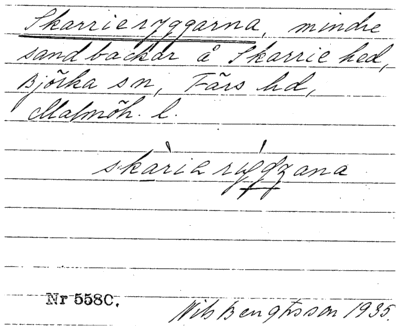 Skarrieryggarna, mindre
sandbackar å Skarrie hed,
Björka sn, Färs hd,
Malmöh. l.
skàrie rýgʒana
Nr 558C.
Nils Bengtsson 1935.